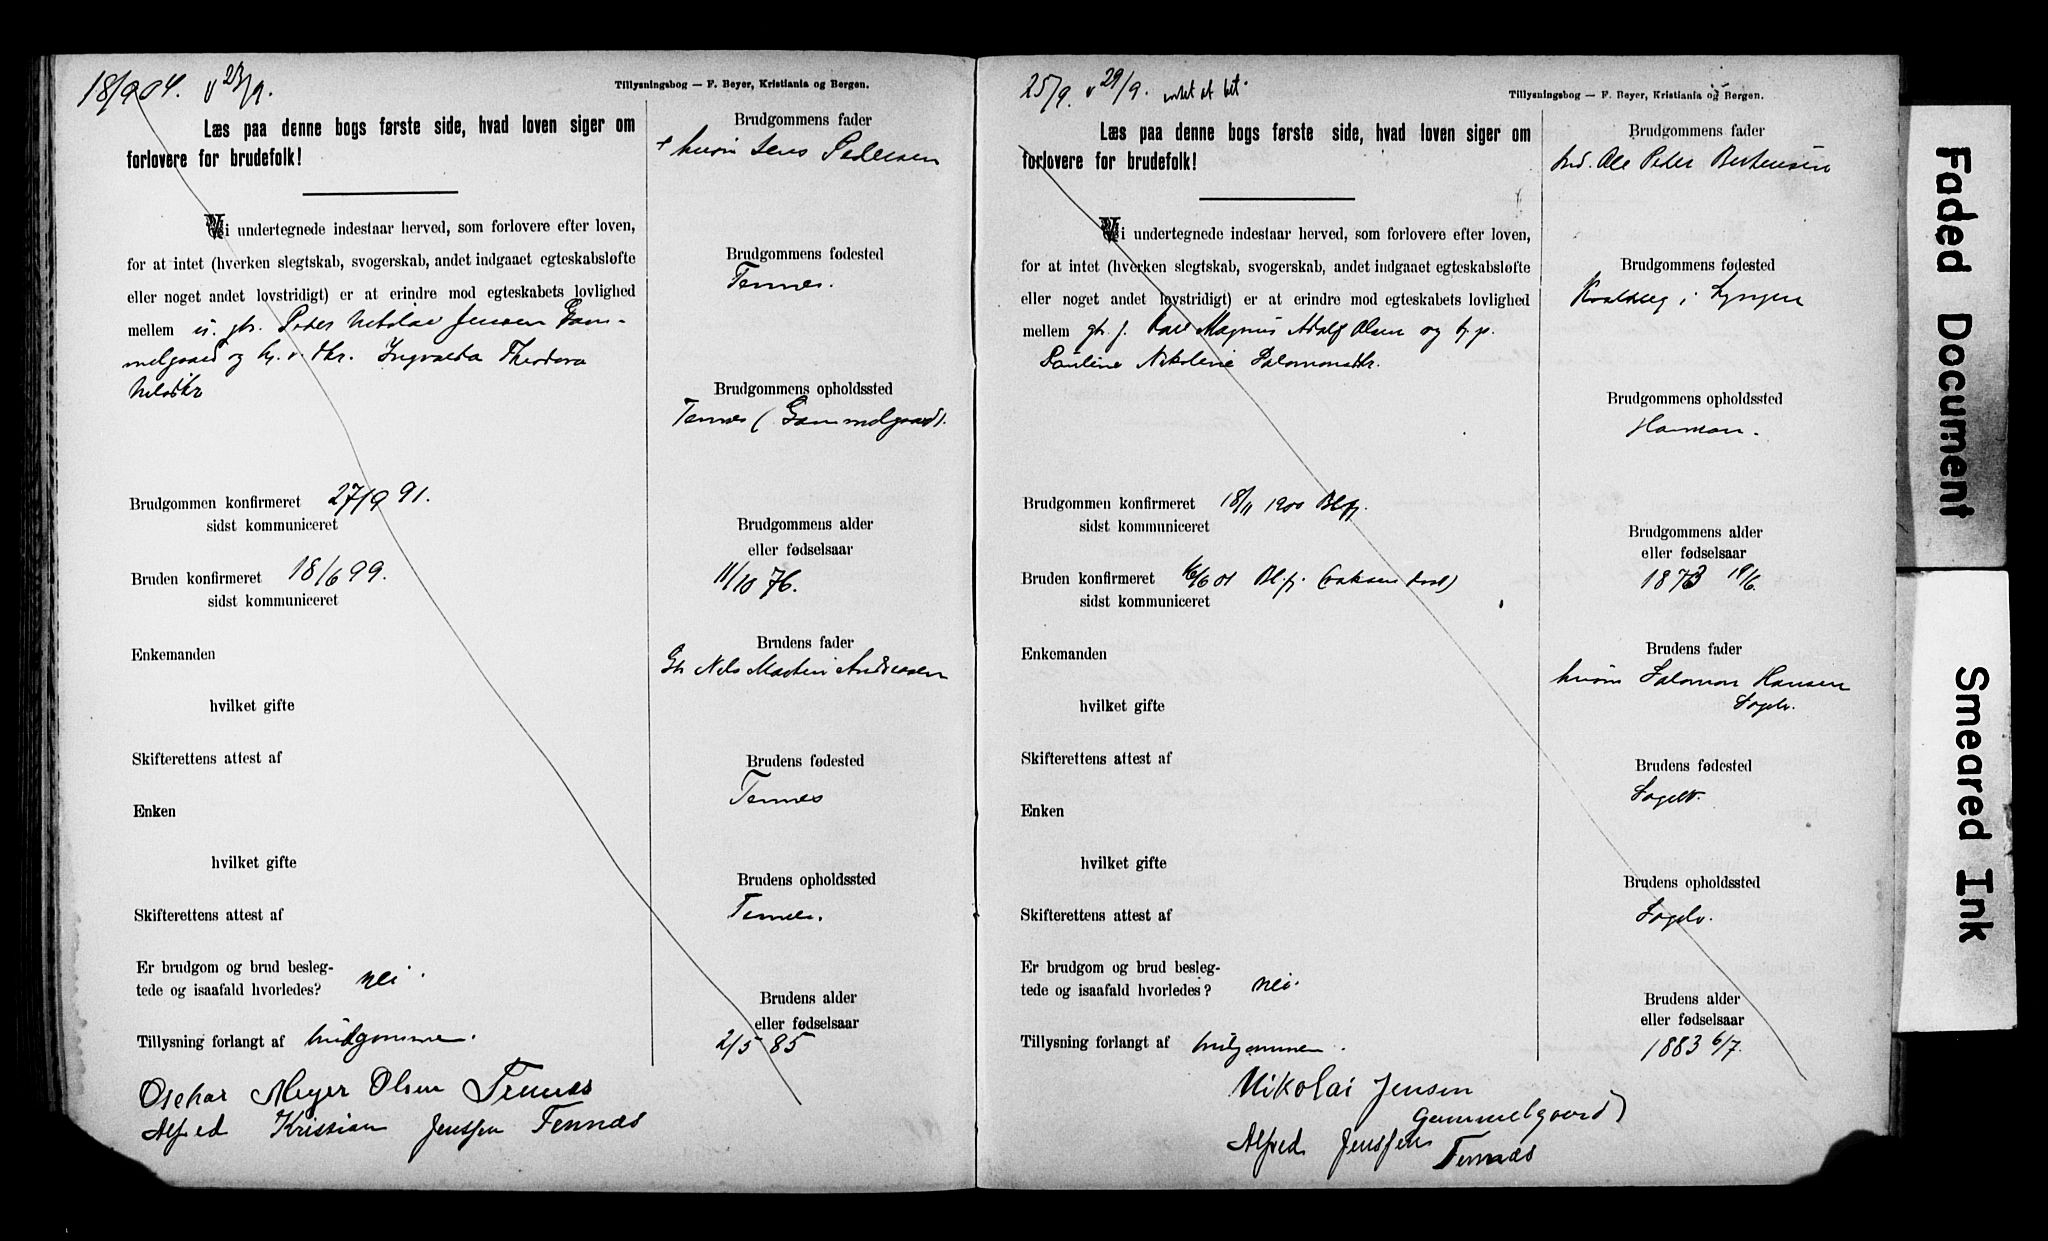 18/9 04. v 23/9.
Tillysningsbog — F. Beyer, Kristiania og Bergen.
Læs paa denne bogs første side, hvad loven siger om
forlovere for brudefolk!
Vi undertegnede indestaar herved, som forlovere efter loven,
for at intet (hverken slegtskab, svogerskab, andet indgaaet egteskabsløfte
eller noget andet lovstridigt) er at erindre mod egteskabets lovlighed
mellem u. gbr. Peder Nikolai Jensen Gam-
melgaard og hj. v. dtr. Ingvalda Theodora
Nilsdtr
Brudgommen konfirmeret 27/9 91.
sidst kommuniceret
Bruden konfirmeret 18/6 99.
sidst kommuniceret
Enkemanden
hvilket gifte
Skifterettens attest af
Enken
hvilket gifte
Skifterettens attest af
Er brudgom og brud besleg-
tede og isaafald hvorledes? nei.
Tillysning forlangt af brudgommen.
Oschar Meyer Olsen Tennes
Alfred Kristian Jenssen Tennæs
Brudgommens fader
+ husm Jens Pedersen
Brudgommens fødested
Tennes.
Brudgommens opholdssted
Tennes (Gammelgaard).
Brudgommens alder
eller fødselsaar
11/10 76.
Brudens fader
Gbr Nils Martin Andreasen
Brudens fødested
Tennes
Brudens opholdssted
Tennes.
Brudens alder
eller fødselsaar
2/5 85
25/9. v 29/9.
Tillysningsbog — F. Beyer, Kristiania og Bergen.
Læs paa denne bogs første side, hvad loven siger om
forlovere for brudefolk!
Vi undertegnede indestaar herved, som forlovere efter loven,
for at intet (hverken slegtskab, svogerskab, andet indgaaet egteskabsløfte
eller noget andet lovstridigt) er at erindre mod egteskabets lovlighed
mellem gbr. f. Carl Magnus Adolf Olsen og hj. p.
Pauline Nikoline Salomonsdtr.
Brudgommen konfirmeret 18/11 1900 Blfj.
sidst kommuniceret
Bruden konfirmeret 16/6 01 Bl.fj.
sidst kommuniceret
Enkemanden
hvilket gifte
Skifterettens attest af
Enken
hvilket gifte
Skifterettens attest af
Er brudgom og brud besleg-
tede og isaafald hvorledes? nei.
Tillysning forlangt af brudgommen.
Nikolai Jensen
Gammelgaard
Alfred Jenssen Tennæs
Brudgommens fader
Ind. Ole Peder Bertensen
Brudgommens fødested
i Lyngen
Brudgommens opholdssted
Brudgommens alder
eller fødselsaar
1873 19/6.
Brudens fader
husm Salomon Hansen
Sagelv.
Brudens fødested
Sagelv.
Brudens opholdssted
Sagelv.
Brudens alder
eller fødselsaar
1883 6/7.
Faded Document
Smeared Ink